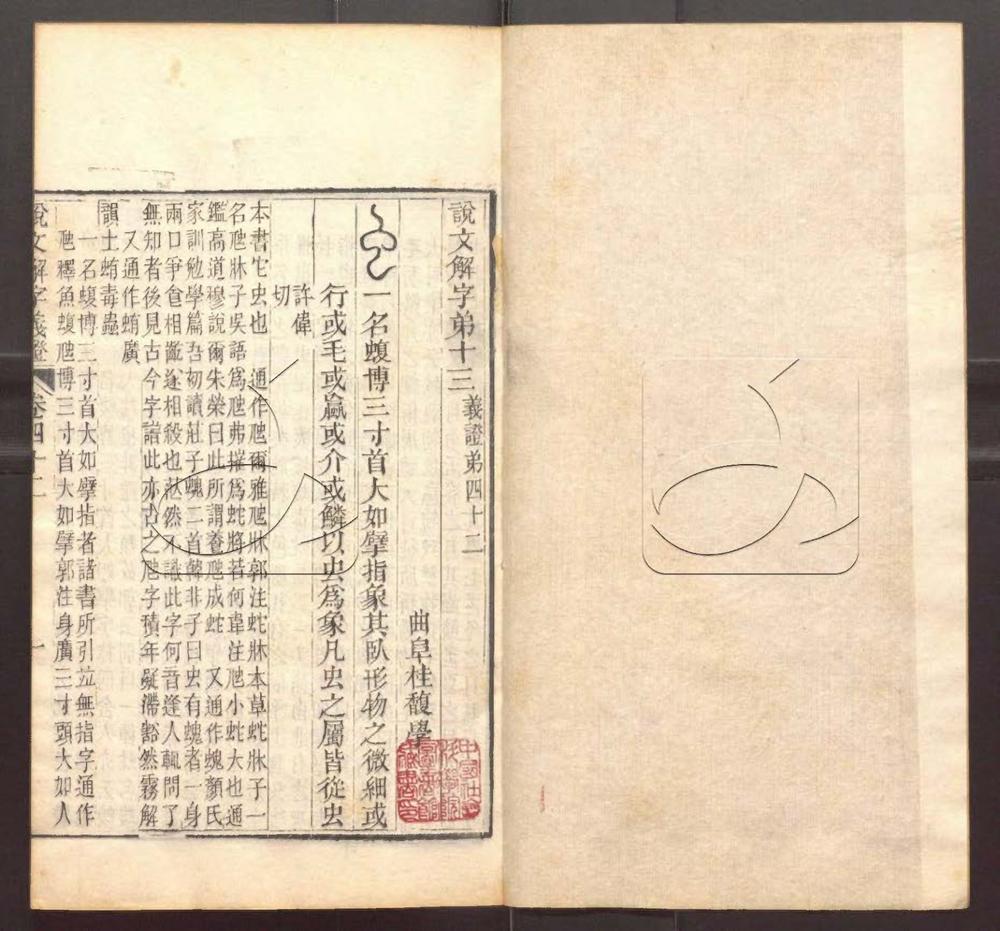 說文解字弟十三 義證弟四十二
曲阜桂馥學
虫 一名蝮博三寸首大如擘指象其臥形物之微細或
行或毛或蠃或介或鱗以虫爲象凡虫之屬皆從虫
許偉
切
本書它虫也 通作虺爾雅虺牀郭注蛇牀本草蛇牀子一
名虺牀子吳語爲虺弗摧爲蛇將若何韋注虺小蛇大也通
鑑高道穆說爾朱榮曰此所謂養虺成蛇 又通作螝顏氏
家訓勉學篇吾初讀莊子螝二首韓非子曰虫有螝者一身
兩口爭食相齕遂相殺也茫然不識此字何音逢人輒問了
無知者後見古今字譜此亦古之虺字積年凝滯豁然霧解
又通作蛕廣
韻土蛕毒蟲
一名蝮博三寸首大如擘指者諸書所引竝無指字通作
虺釋魚蝮虺博三寸首大如擘郭注身廣三寸頭大如人
說文解字義證 卷四十二 一